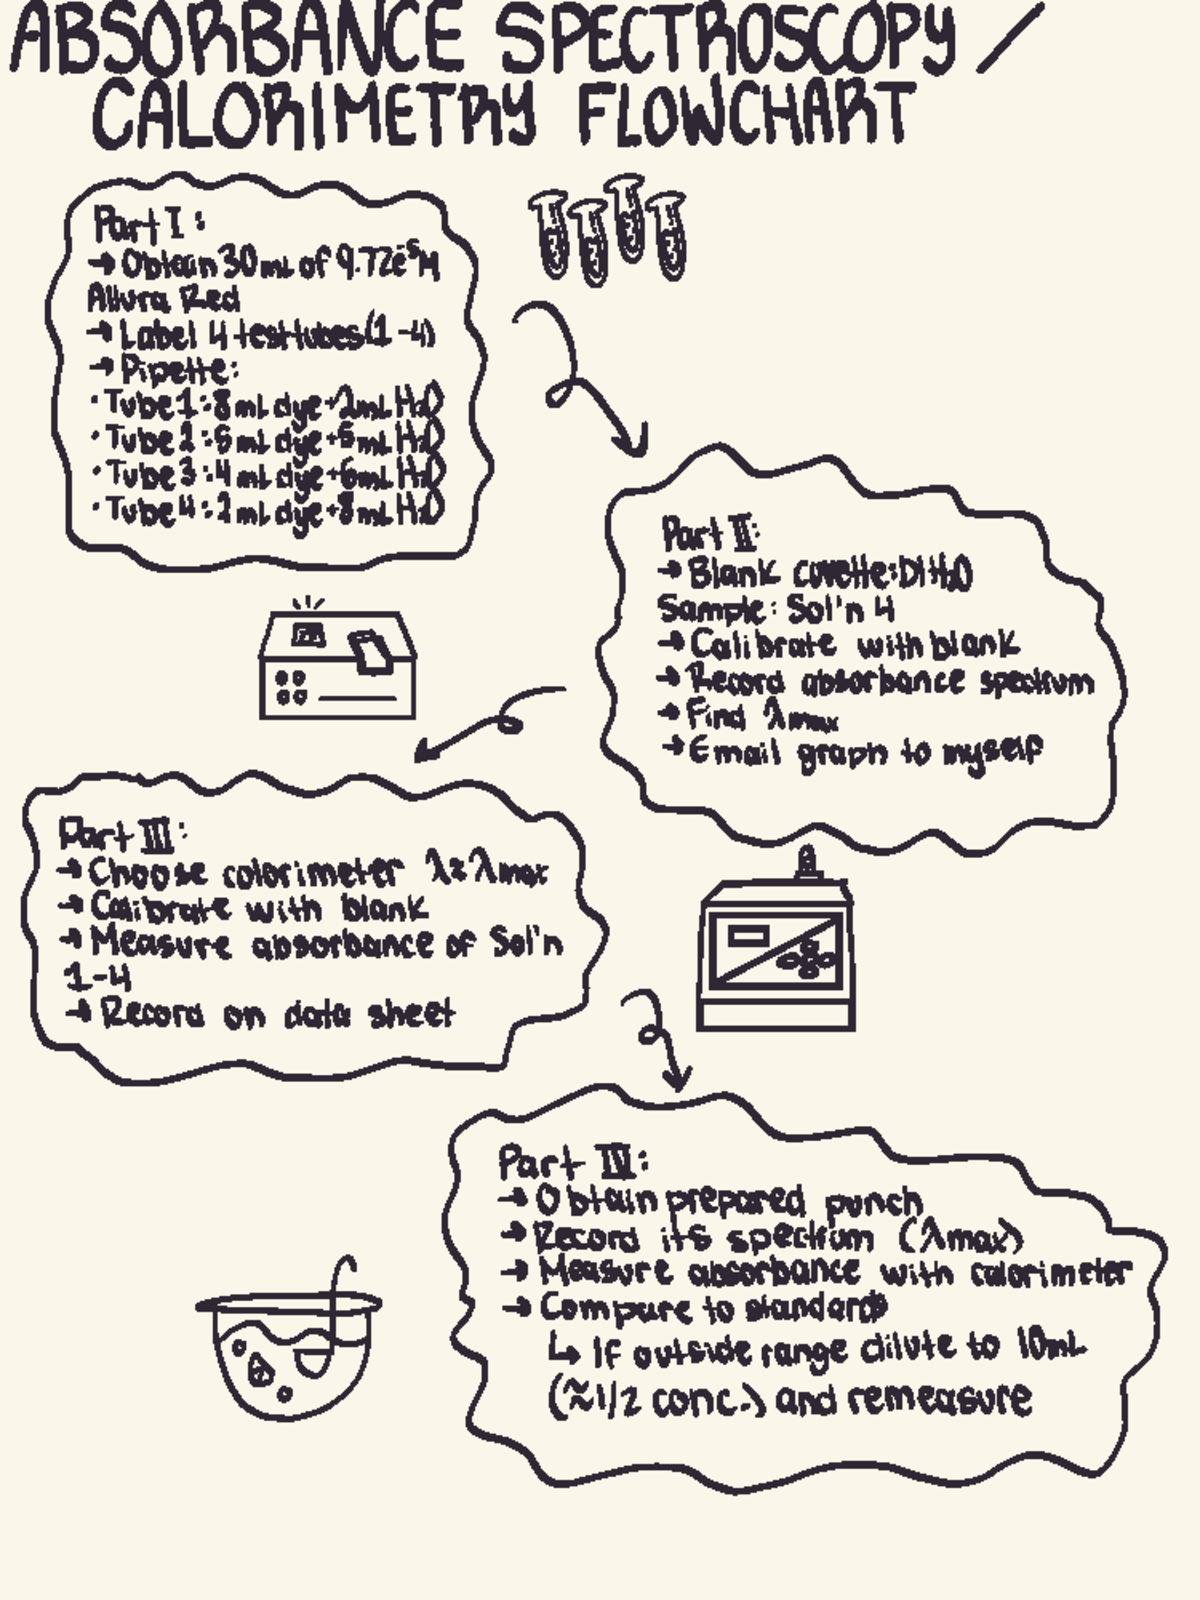 ABSORBANCE SPECTROSCOPY /
CALORIMETRY FLOWCHART
Part I:
→ Obtain 30 mL of 9.72e⁻⁵M
Allura Red
→ Label 4 test tubes (1-4)
→ Pipette:
· Tube 1: 8 mL dye + 2 mL H₂O
· Tube 2: 5 mL dye + 5 mL H₂O
· Tube 3: 4 mL dye + 6 mL H₂O
· Tube 4: 2 mL dye + 8 mL H₂O
Part II:
→ Blank cuvette: DI H₂O
Sample: Sol'n 4
→ Calibrate with blank
→ Record absorbance spectrum
→ Find λmax
→ Email graph to myself
Part III:
→ Choose colorimeter λ≈λmax
→ Calibrate with blank
→ Measure absorbance of Sol'n
1-4
→ Record on data sheet
Part IV:
→ Obtain prepared punch
→ Record its spectrum (λmax)
→ Measure absorbance with calorimeter
→ Compare to standards
↳ If outside range dilute to 10mL
(≈1/2 conc.) and remeasure